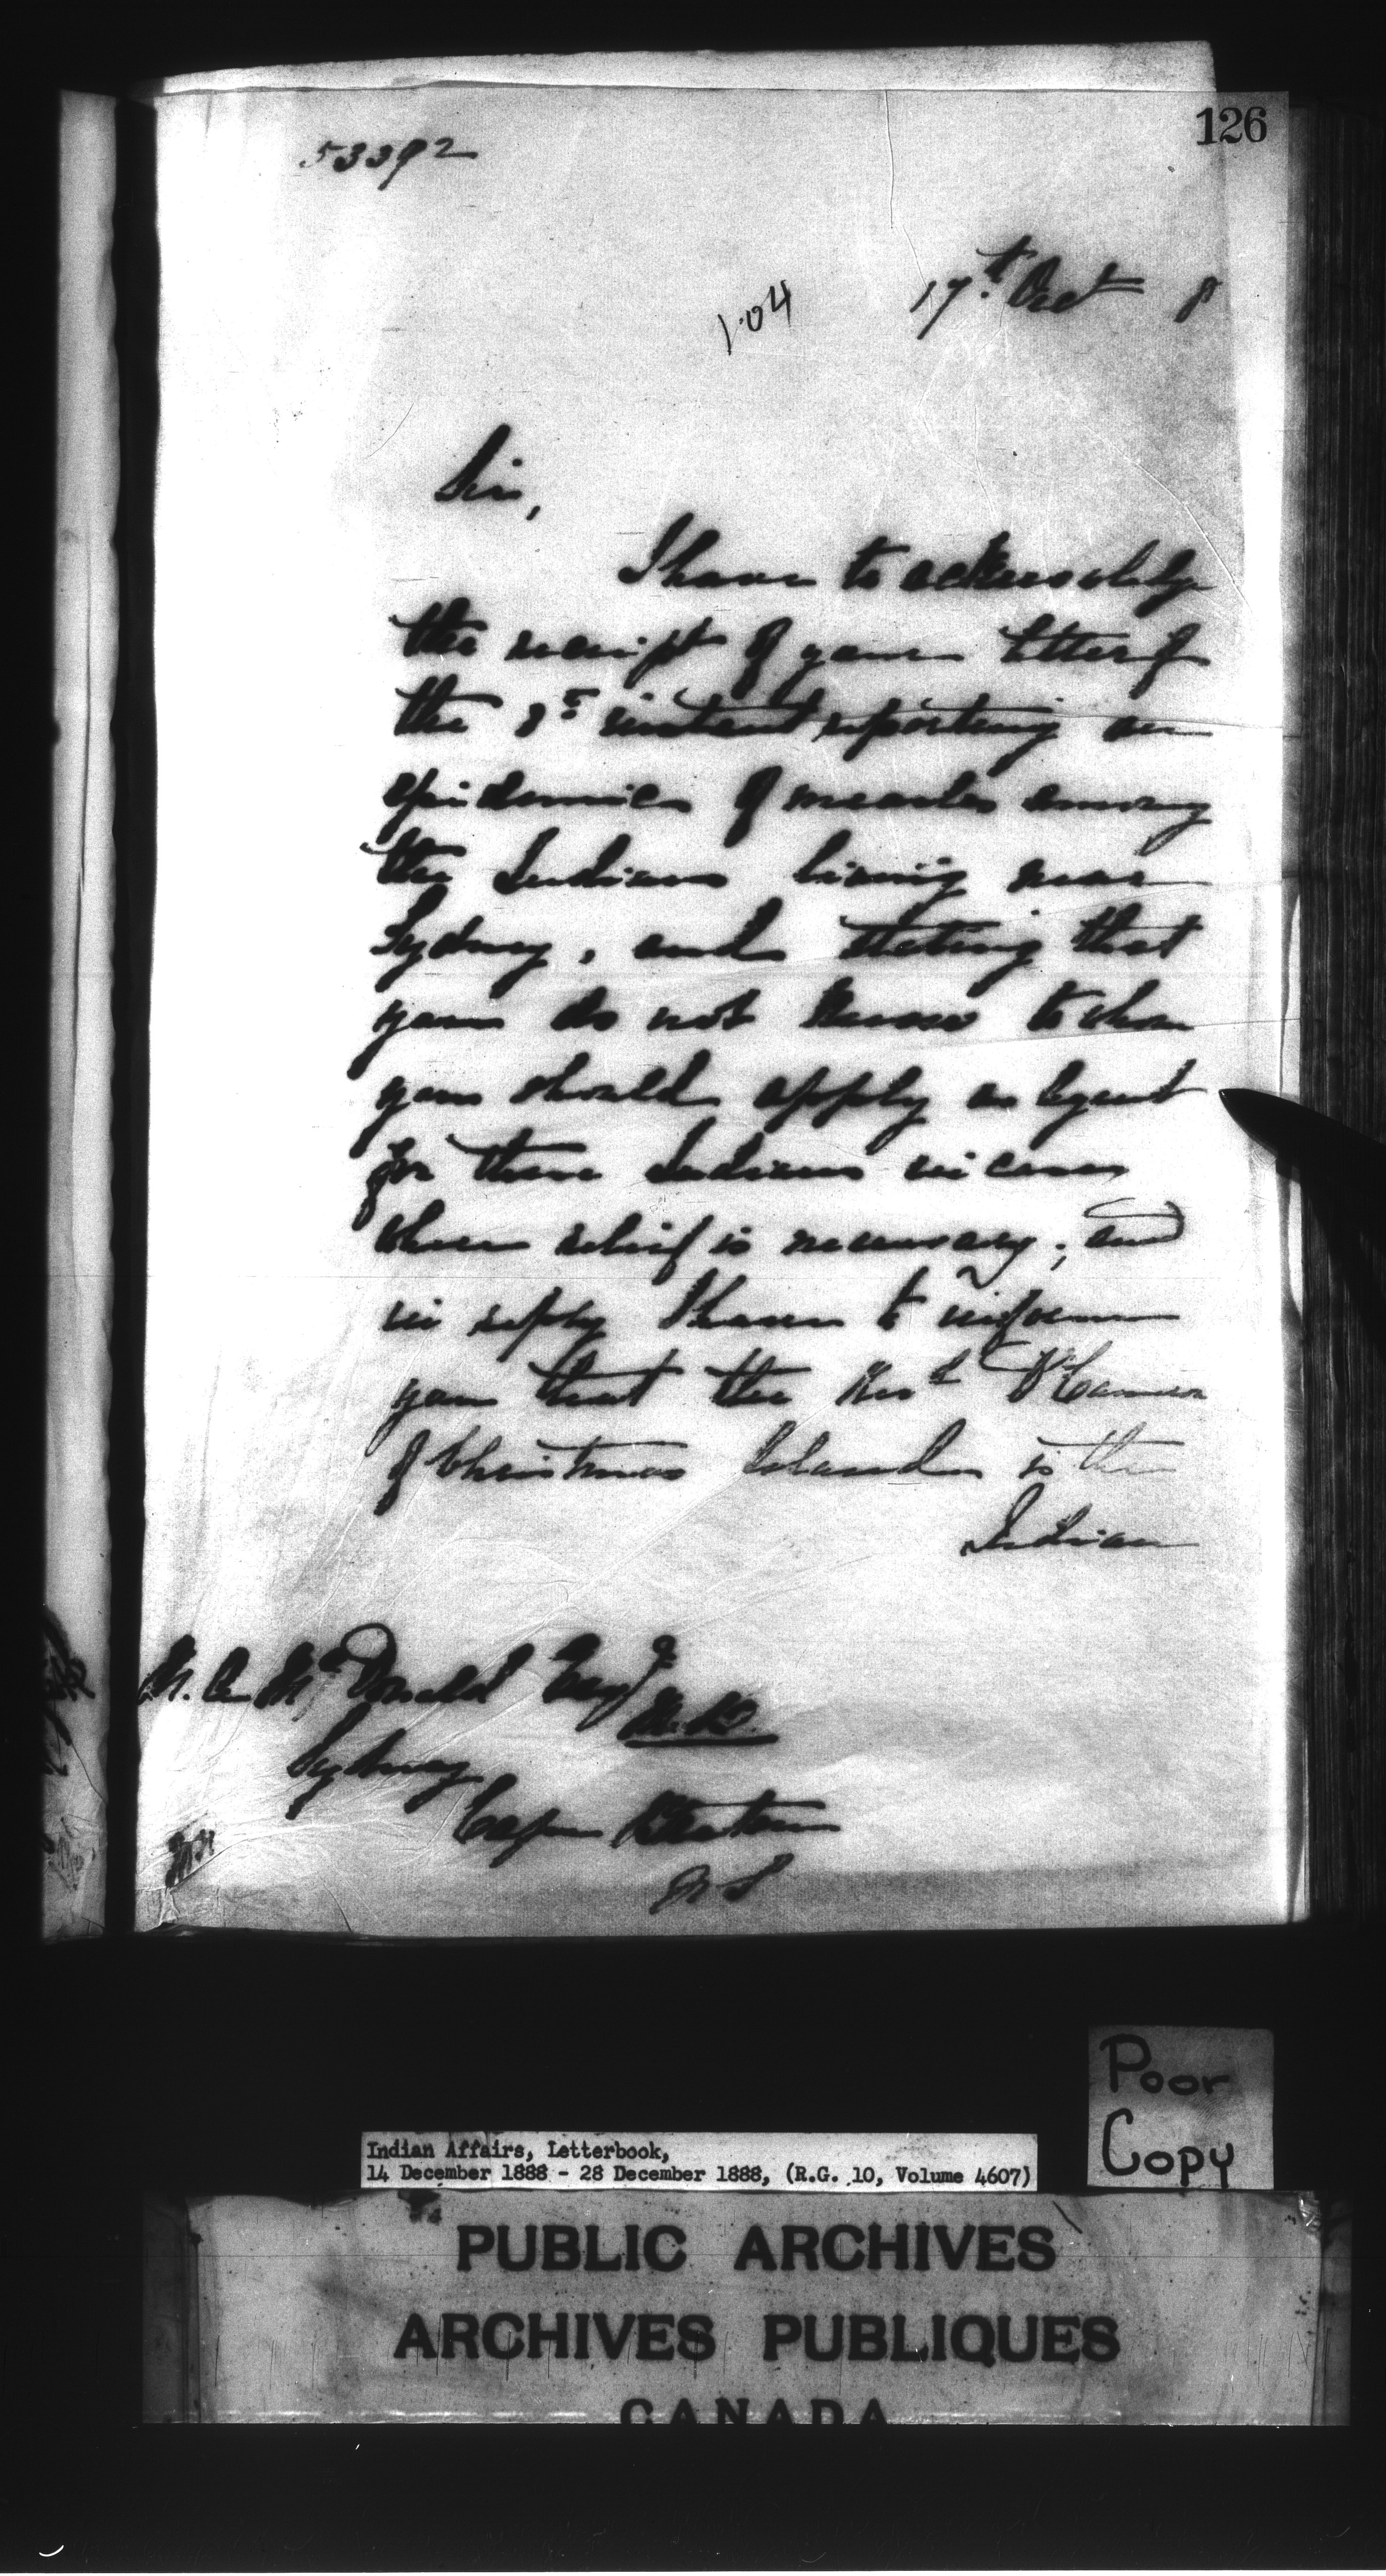 126
53392
17th Oct 8
1.04
Sir,
I have to acknowledge
the receipt of your letter of
the 8th instant reporting an
epidemic of measles among
the Indians living near
Sydney, and stating that
you do not know to whom
you should apply as Agent
for these Indians in cases
where relief is necessary; and
in reply I have to inform
you that the Revd
of Christmas Island is the
Indian
M. A. McDonald Esqre
M.D.
Sydney
Cape Breton
N S
Poor
Copy
Indian Affairs, Letterbook,
14 December 1888 - 28 December 1888, (R.G. 10, Volume 4607)
PUBLIC ARCHIVES
ARCHIVES PUBLIQUES
CANADA